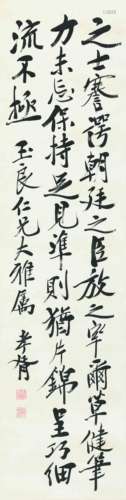 之士謇諤朝廷之臣放之率爾草健筆
力未忘保持足見準則猶片錦呈巧細
流不極 玉良仁兄大雅屬 孝胥